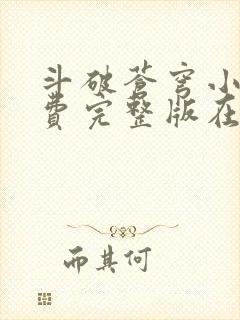 斗破苍穹小
费完整版在
而其何